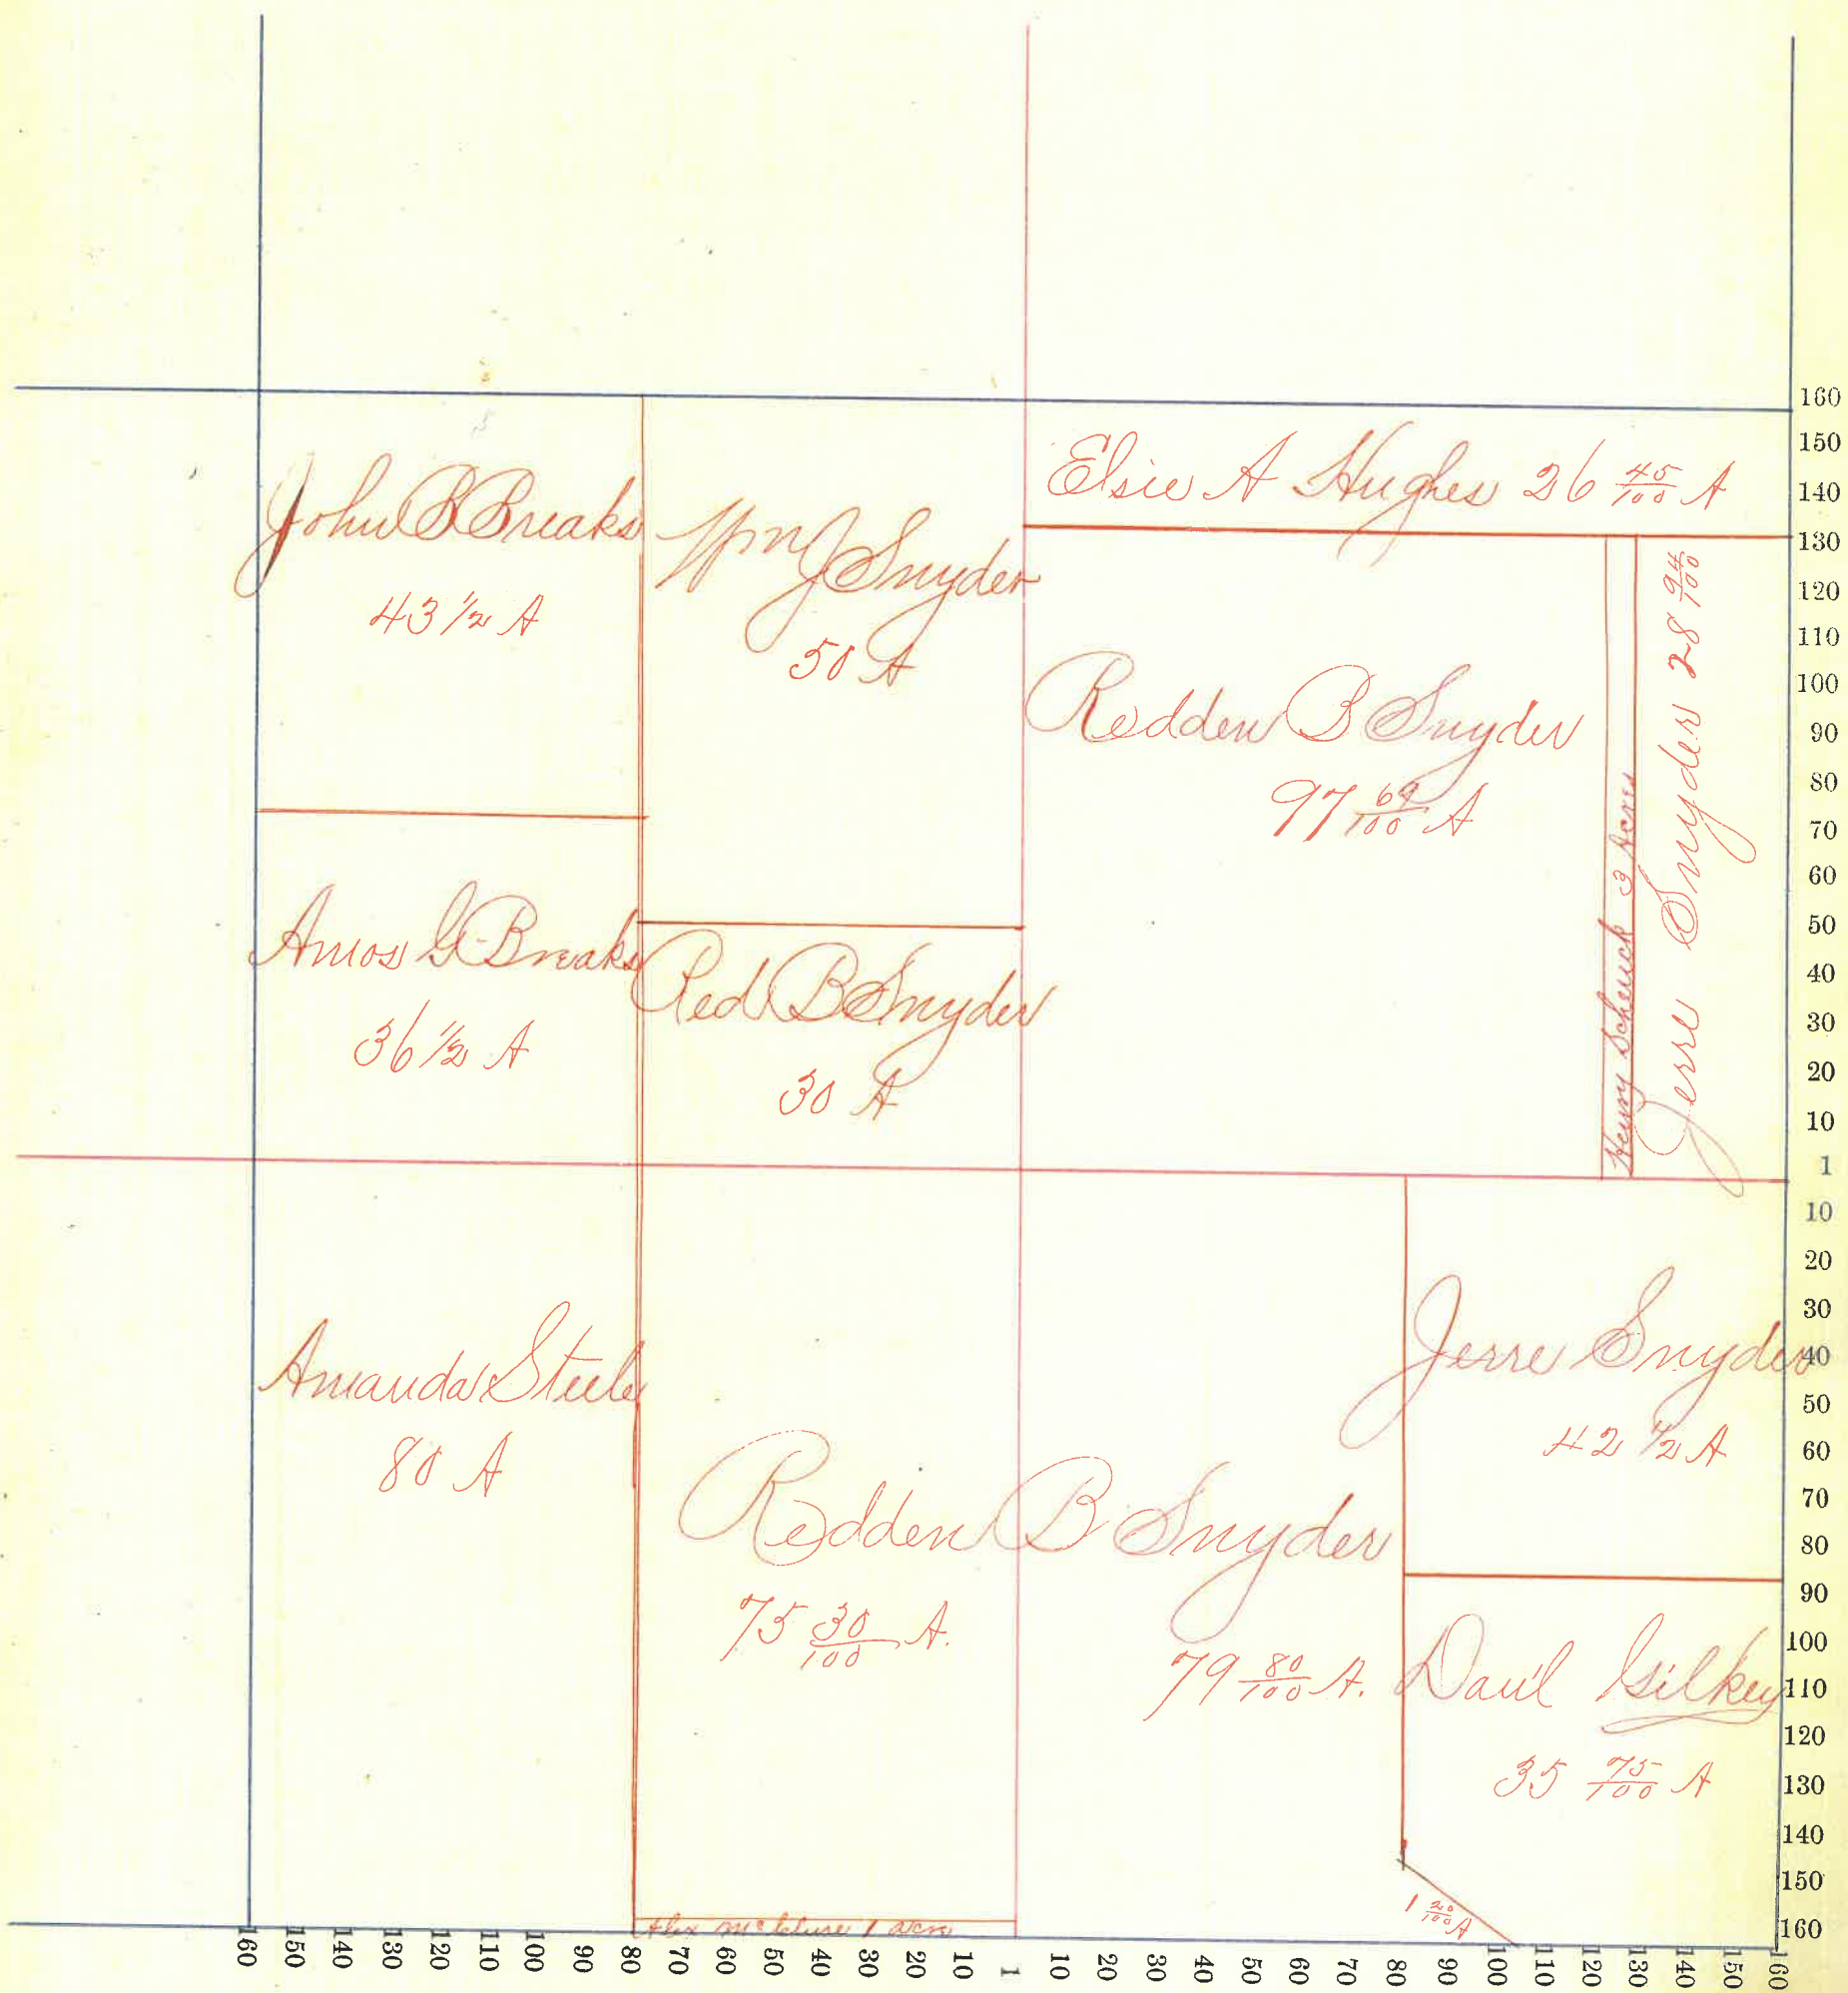 John B Breaks
43 1/2 A
Wm J Snyder
50 A
Elsie A Hughes 26 45/100 A
Redden B Snyder
97 69/100 A
Henry Schenck 3 Acres
Jerre Snyder 28 94/100
Amos G Breaks
36 1/2 A
Red B Snyder
30 A
Amanda Steele
80 A
Redden B Snyder
75 30/100 A.
79 80/100 A.
Jerre Snyder
42 1/2 A
Danl Gilkey
35 75/100 A
1 20/100 A
Alex McClure 1 acre
160
150
140
130
120
110
100
90
80
70
60
50
40
30
20
10
1
10
20
30
40
50
60
70
80
90
100
110
120
130
140
150
160
160 150 140 130 120 110 100 90 80 70 60 50 40 30 20 10 1 10 20 30 40 50 60 70 80 90 100 110 120 130 140 150 160